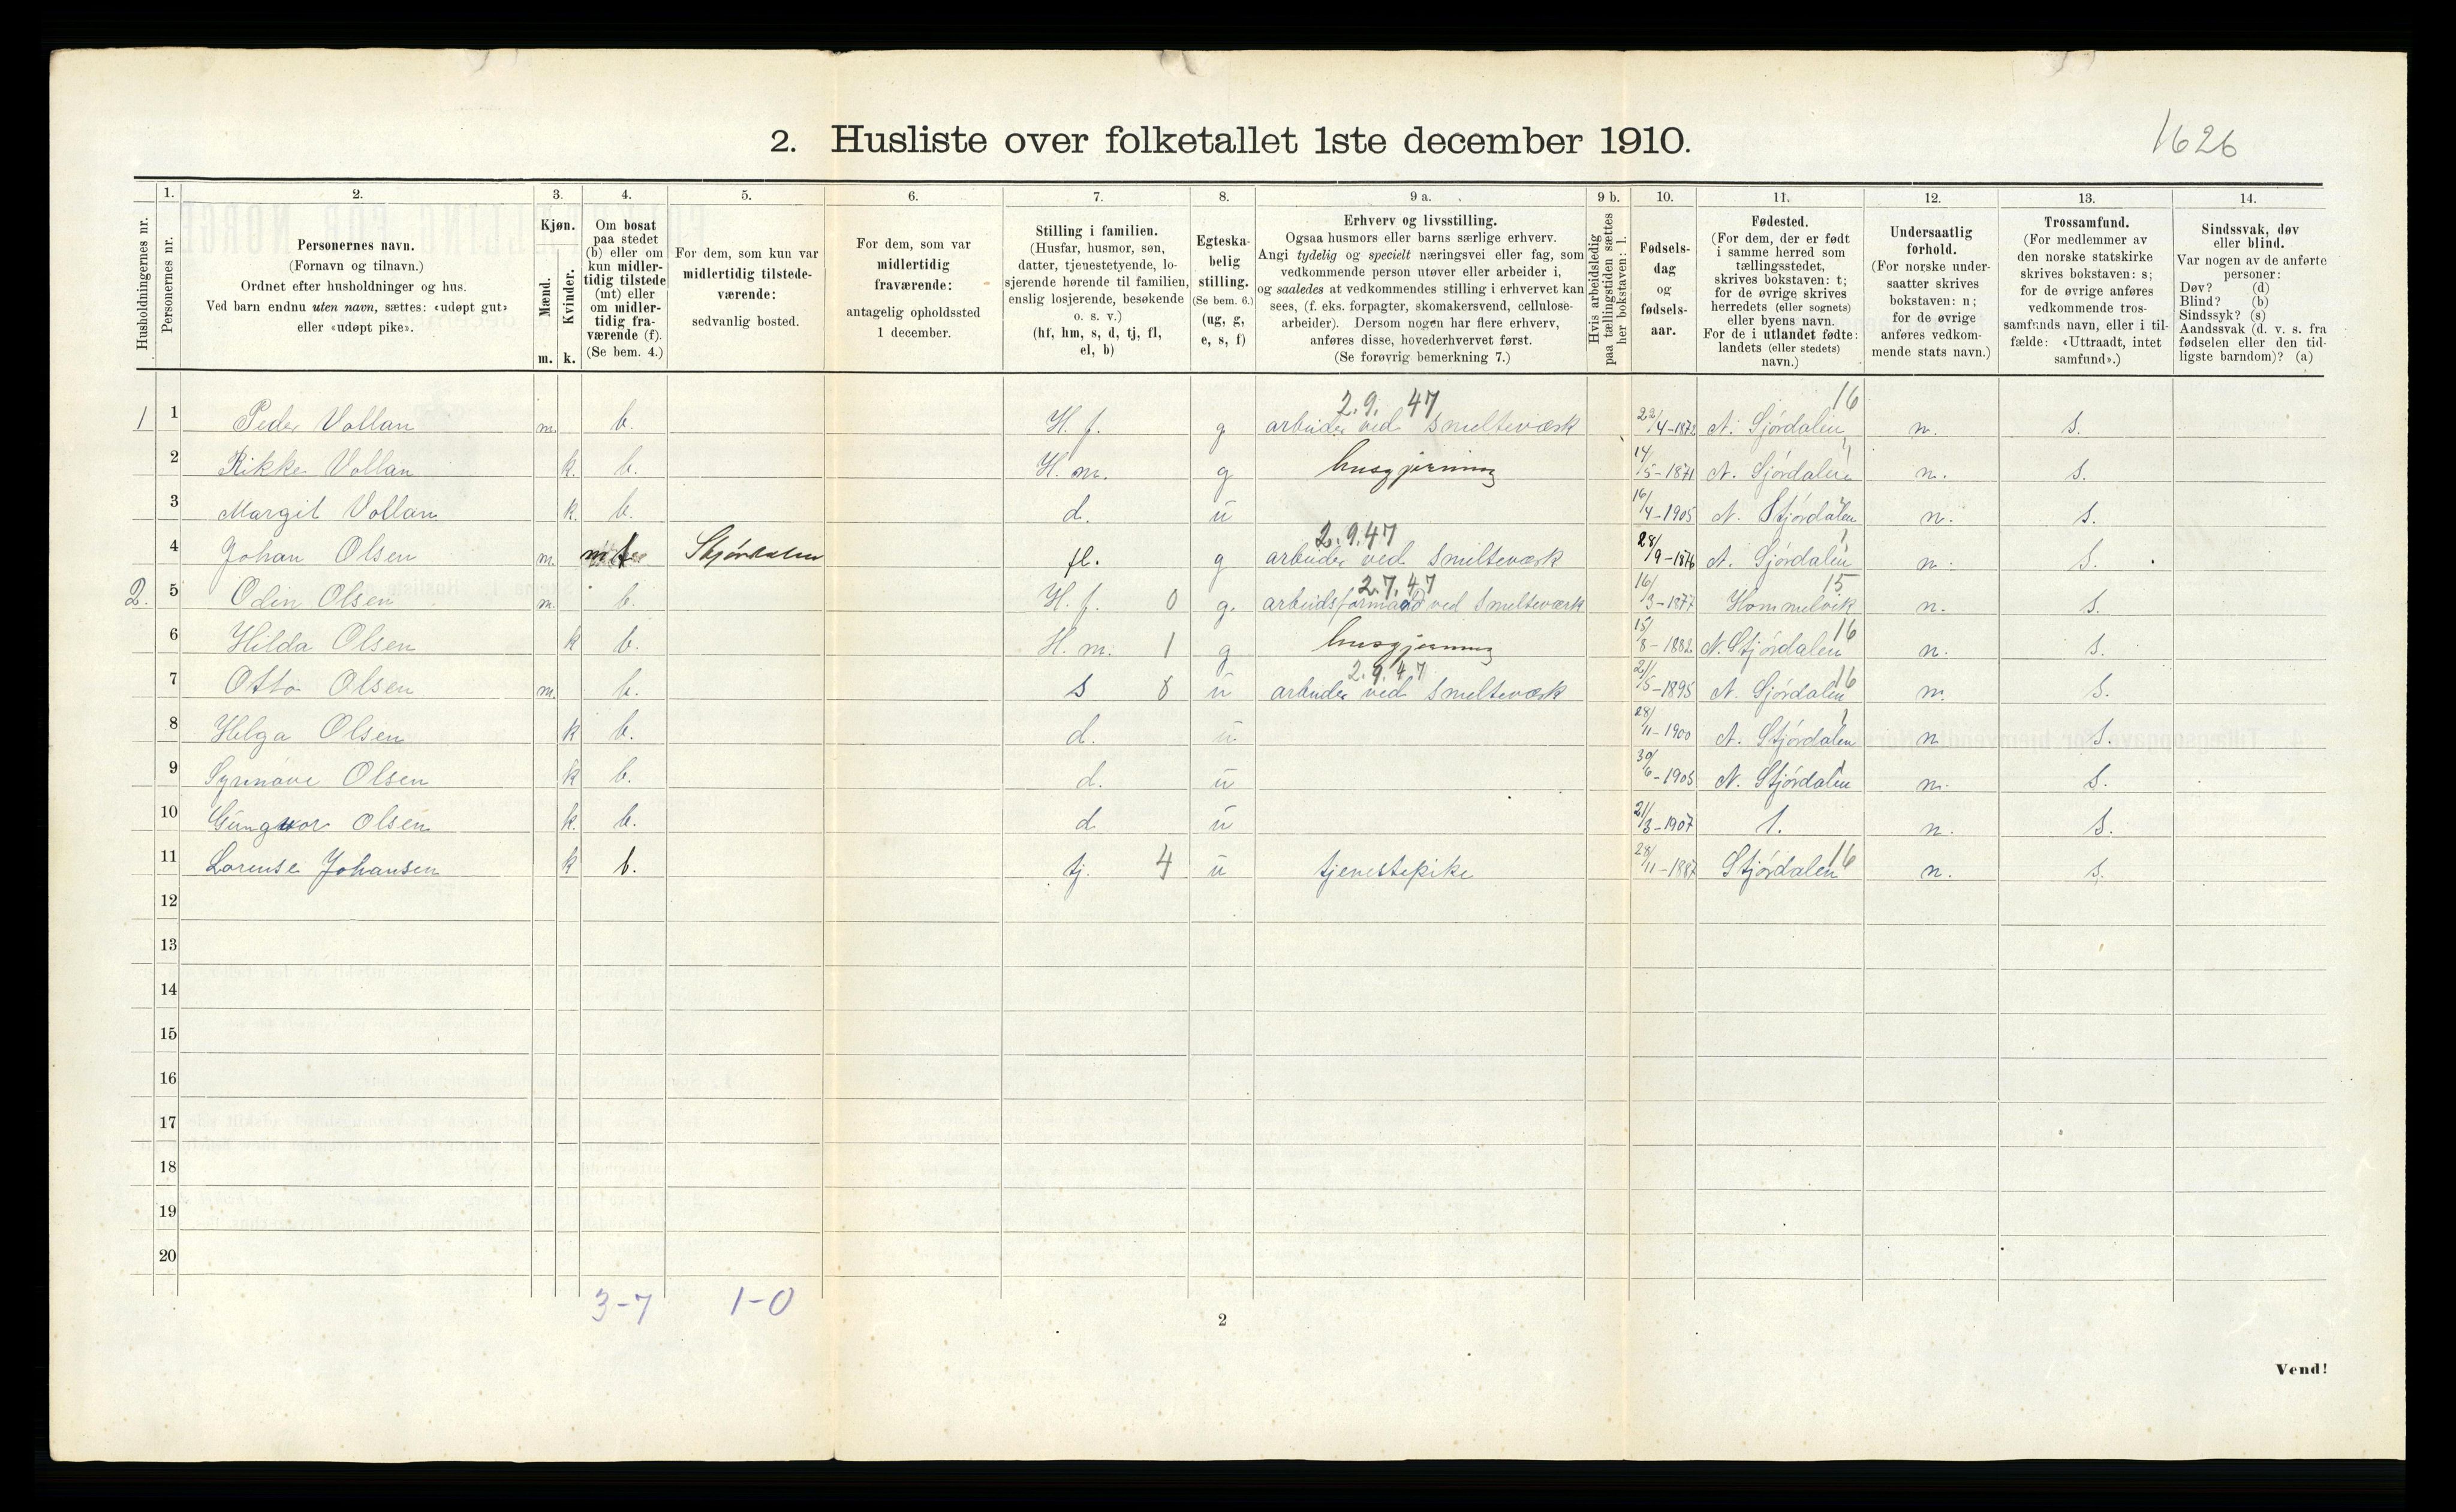 2. Husliste over folketallet 1ste december 1910.
1626
Husholdningernes nr.
1.
Personernes nr.
2.
Personernes navn.
(Fornavn og tilnavn.)
Ordnet efter husholdninger og hus.
Ved barn endnu uten navn, sættes: «udøpt gut»
eller «udøpt pike».
3.
Kjøn.
Mænd.
Kvinder.
m. k.
4.
Om bosat
paa stedet
(b) eller om
kun midler-
tidig tilstede
(mt) eller
om midler-
tidig fra-
værende (f).
(Se bem. 4.)
5.
For dem, som kun var
midlertidig tilstede-
værende:
sedvanlig bosted.
6.
For dem, som var
midlertidig
fraværende:
antagelig opholdssted
1 december.
7.
Stilling i familien.
(Husfar, husmor, søn,
datter, tjenestetyende, lo-
sjerende hørende til familien,
enslig losjerende, besøkende
o. s. v.)
(hf, hm, s, d, tj, fl,
el, b)
8.
Egteska-
belig
stilling.
(Se bem. 6.)
(ug, g,
e, s, f)
9 a.
Erhverv og livsstilling.
Ogsaa husmors eller barns særlige erhverv.
Angi tydelig og specielt næringsvei eller fag, som
vedkommende person utøver eller arbeider i,
og saaledes at vedkommendes stilling i erhvervet kan
sees, (f. eks. forpagter, skomakersvend, cellulose-
arbeider). Dersom nogen har flere erhverv,
anføres disse, hovederhvervet først.
(Se forøvrig bemerkning 7.)
9 b.
Hvis arbeidsledig
paa tællingstiden sættes
her bokstaven: l.
10.
Fødsels-
dag
og
fødsels-
aar.
11.
Fødested.
(For dem, der er født
i samme herred som
tællingsstedet,
skrives bokstaven: t;
for de øvrige skrives
herredets (eller sognets)
eller byens navn.
For de i utlandet fødte:
landets (eller stedets)
navn.)
12.
Undersaatlig
forhold.
(For norske under-
saatter skrives
bokstaven: n;
for de øvrige
anføres vedkom-
mende stats navn.)
13.
Trossamfund.
(For medlemmer av
den norske statskirke
skrives bokstaven: s;
for de øvrige anføres
vedkommende tros-
samfunds navn, eller i til-
fælde: «Uttraadt, intet
samfund».)
14.
Sindssvak, døv
eller blind.
Var nogen av de anførte
personer:
Døv? (d)
Blind? (b)
Sindssyk? (s)
Aandssvak (d. v. s. fra
fødselen eller den tid-
ligste barndom)? (a)
2.9. 47 16
1 1 Peder Vollan m. b. H. f. g arbeider ved smelteværk 22/4-1872 N. Sjørdalen n. s.
2 Rikke Vollan k. b. H. m. g husgjerning 14/5-1871 N. Sjørdalen n. s.
3 Margit Vollan k. b. d. u 16/4-1905 N. Stjørdalen n. s.
2.9.47
4 Johan Olsen m. mt Stjørdalen fl. g arbeider ved smelteværk 28/9-1876 N. Sjørdalen n. s.
2.7.47 15
2. 5 Odin Olsen m. b. H. f. 0 g. arbeidsformand ved smelteværk 16/3-1877 Hommelvik n. s.
6 Hilda Olsen k b. H. m. 1 g husgjerning 15/8-1882 N. Stjørdalen 16 n. s.
2.9.47
7 Otto Olsen m. b. s 8 u arbeider ved smelteværk 21/5-1895 N. Sjørdalen 16 n. s.
8 Helga Olsen k b. d. u 28/11-1900 N. Stjørdalen n s.
9 Synnøve Olsen k b. d. u 30/6-1905 N. Stjørdalen n. s.
10 Gungvor Olsen k. b. d u 21/3-1907 t. n. s.
11 Lorense Johansen k b. tj. 4 u tjenestepike 28/11-1887 Stjørdalen 16 n. s.
12
13
14
15
16
17
18
19
20
3-7 1-0
2
Vend!